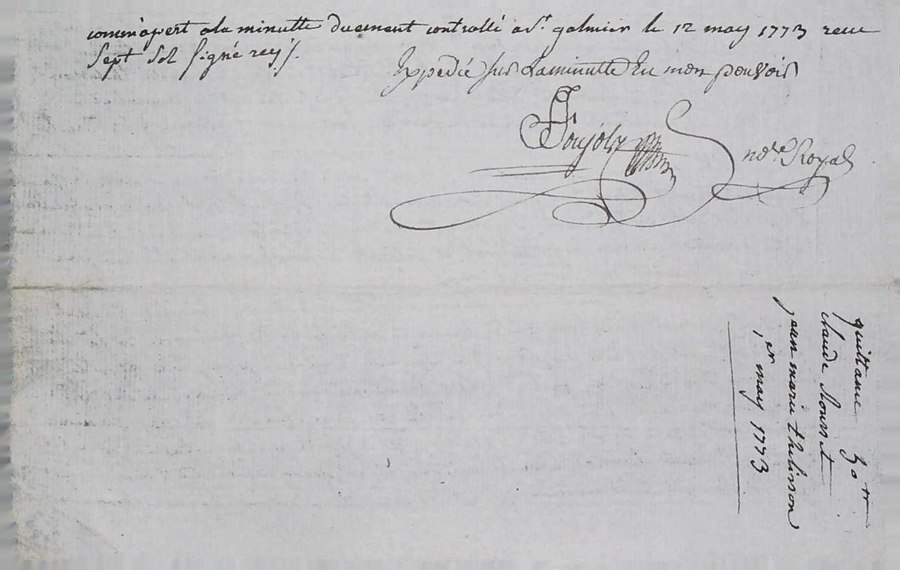 comm'apert a la minutte duement controllé a St. galmier le 12 may 1773 receu
Sept Sol Signé rey /.
Expedié sur La minutte En mon pouvoir
not.re Royal
quittance 30 tt
claude
jean marie thelisson
1er may 1773